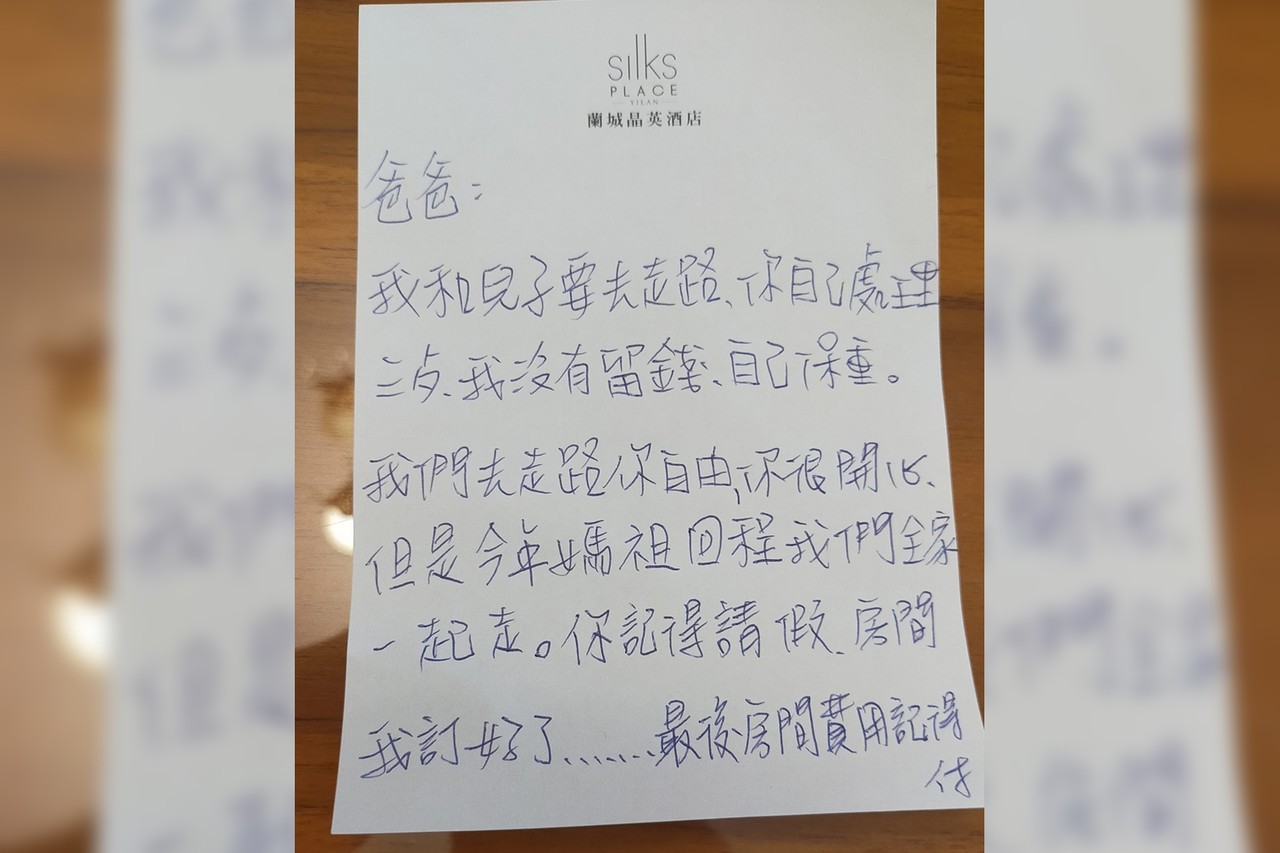 silks
PLACE
YILAN
蘭城晶英酒店
爸爸:
我和兒子要去走路、你自己處理
三歺、我沒有留錢、自己保重。
我們去走路你自由,你很開心、
但是今年媽祖回程我們全家
一起走。你記得請假、房間
我訂好了.......最後房間費用記得
付